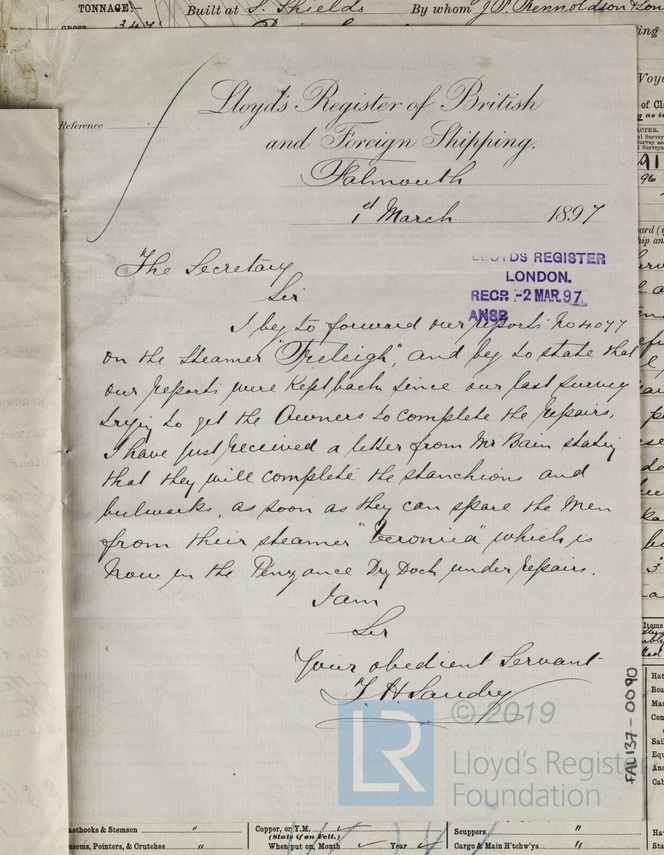 TONNAGE
Built at S. Shields By whom J.P. Rennoldson & Son
GROSS
Reference
Lloyd's Register of British
and Foreign Shipping.
Falmouth
1st March 1897
LLOYDS REGISTER
LONDON.
RECD -2 MAR.97
ANSD
The Secretary
Sir
I beg to forward our reports No 4077
on the Steamer "Treleigh", and beg to state that
our reports were kept back since our last survey
trying to get the Owners to complete the repairs,
I have just received a letter from Mr Bain stating
that they will complete the stanchions and
bulwarks, as soon as they can spare the men
from their steamer "Veronica" which is
now in the Penzance Dry Dock under repairs.
I am
Sir
Your obedient Servant
© 2019
LR
Lloyd's Register
Foundation
FAL137-0090
Items
Copper, or Y.M.
(State if on Felt.)
When put on, Month Year
Scuppers "
Cargo & Main H'tchw'ys "
Pointers, & Crutches "
& Stemson "